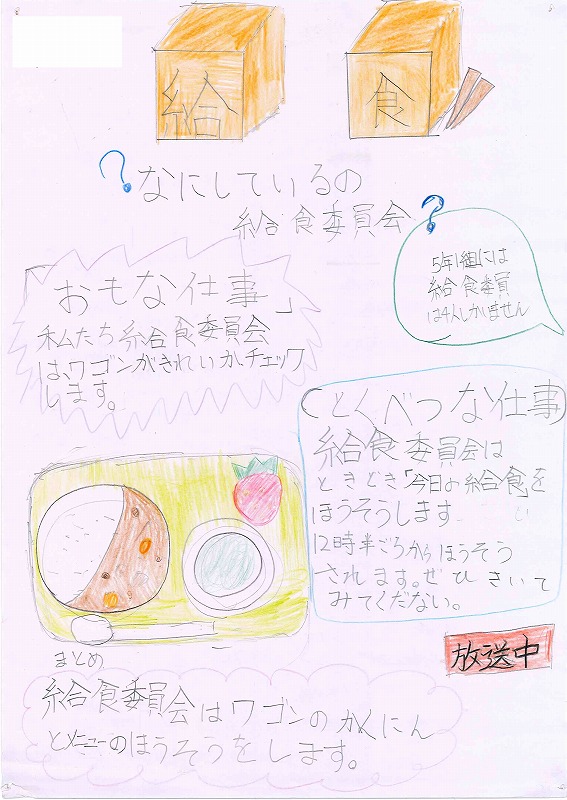 給 食
?なにしているの
給食委員会?
5年1組には
給食委員
は4人しかいません
「おもな仕事」
私たち給食委員会
は、ワゴンがきれいか、チェック
します。
(とくべつな仕事)
給食委員会は
ときどき「今日の給食」を
ほうそうします
12時半ごろからほうそう
されます。ぜひきいて
みてくだない。
放送中
まとめ
給食委員会はワゴンのかくにん
とメニューのほうそうをします。